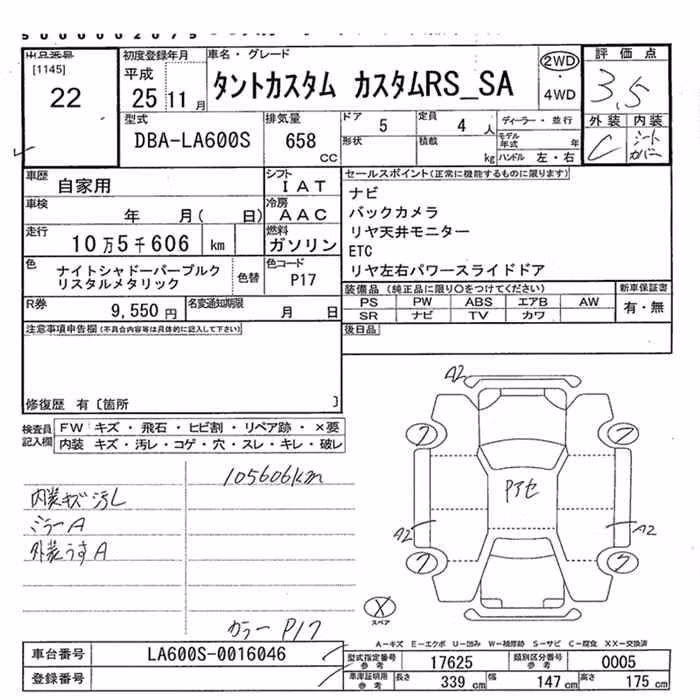 出品番号 初度登録年月 車名・グレード 2WD 評価点
[1145] 平成
22 25 11 月 タントカスタム カスタムRS_SA ・ 3.5
4WD
型式 排気量 ドア 定員 ディーラー・並行 外装 内装
DBA-LA600S 658 cc 5 4 人 モデル年式 年 C シートカバー
形状 積載 kg ハンドル 左・右
車歴 自家用 シフト IAT セールスポイント(正常に機能するものに限ります)
車検 年 月( 日) 冷房 AAC ナビ
バックカメラ
走行 10万5千606 km 燃料 ガソリン リヤ天井モニター
ETC
色 ナイトシャドーパープルク 色替 色コード リヤ左右パワースライドドア
リスタルメタリック P17
装備品(純正品に限り○をつけてください) 新車保証書
R券 9,550 円 名変通知期限 月 日 PS PW ABS エアB AW 有・無
SR ナビ TV カワ
注意事項申告欄(不具合内容等は具体的に記入して下さい) 後日品
修復歴 有〔箇所 〕
検査員記入欄 FW キズ・飛石・ヒビ割・リペア跡・×要
内装 キズ・汚レ・コゲ・穴・スレ・キレ・破レ
105606km
内装キズ汚レ
ミラーA
外装うすA
カラーP17
A2
7 7
Pアセ
A2 A2
7 7
X
スペア
A-キズ E-エクボ U-凹み W-補修跡 S-サビ C-腐食 XX-交換済
車台番号 LA600S-0016046 型式指定番号 参考 17625 類別区分番号 参考 0005
登録番号 車庫証明用 参考 長さ 339 cm 幅 147 cm 高さ 175 cm